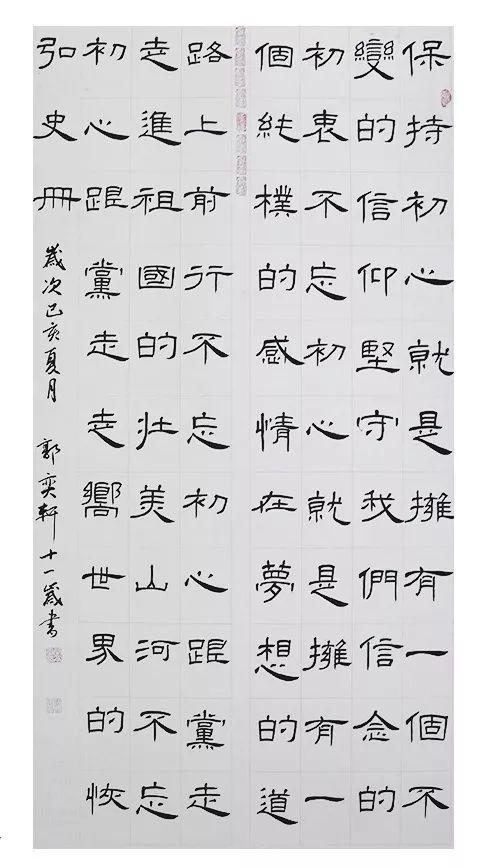 保持初心就是擁有一個不
變的信仰堅守我們信念的
初衷不忘初心就是擁有一
個純樸的感情在夢想的道
路上前行不忘初心跟黨走
走進祖國的壯美山河不忘
初心跟黨走走嚮世界的恢
弘史冊
歲次己亥夏月 郭奕軒十一歲書